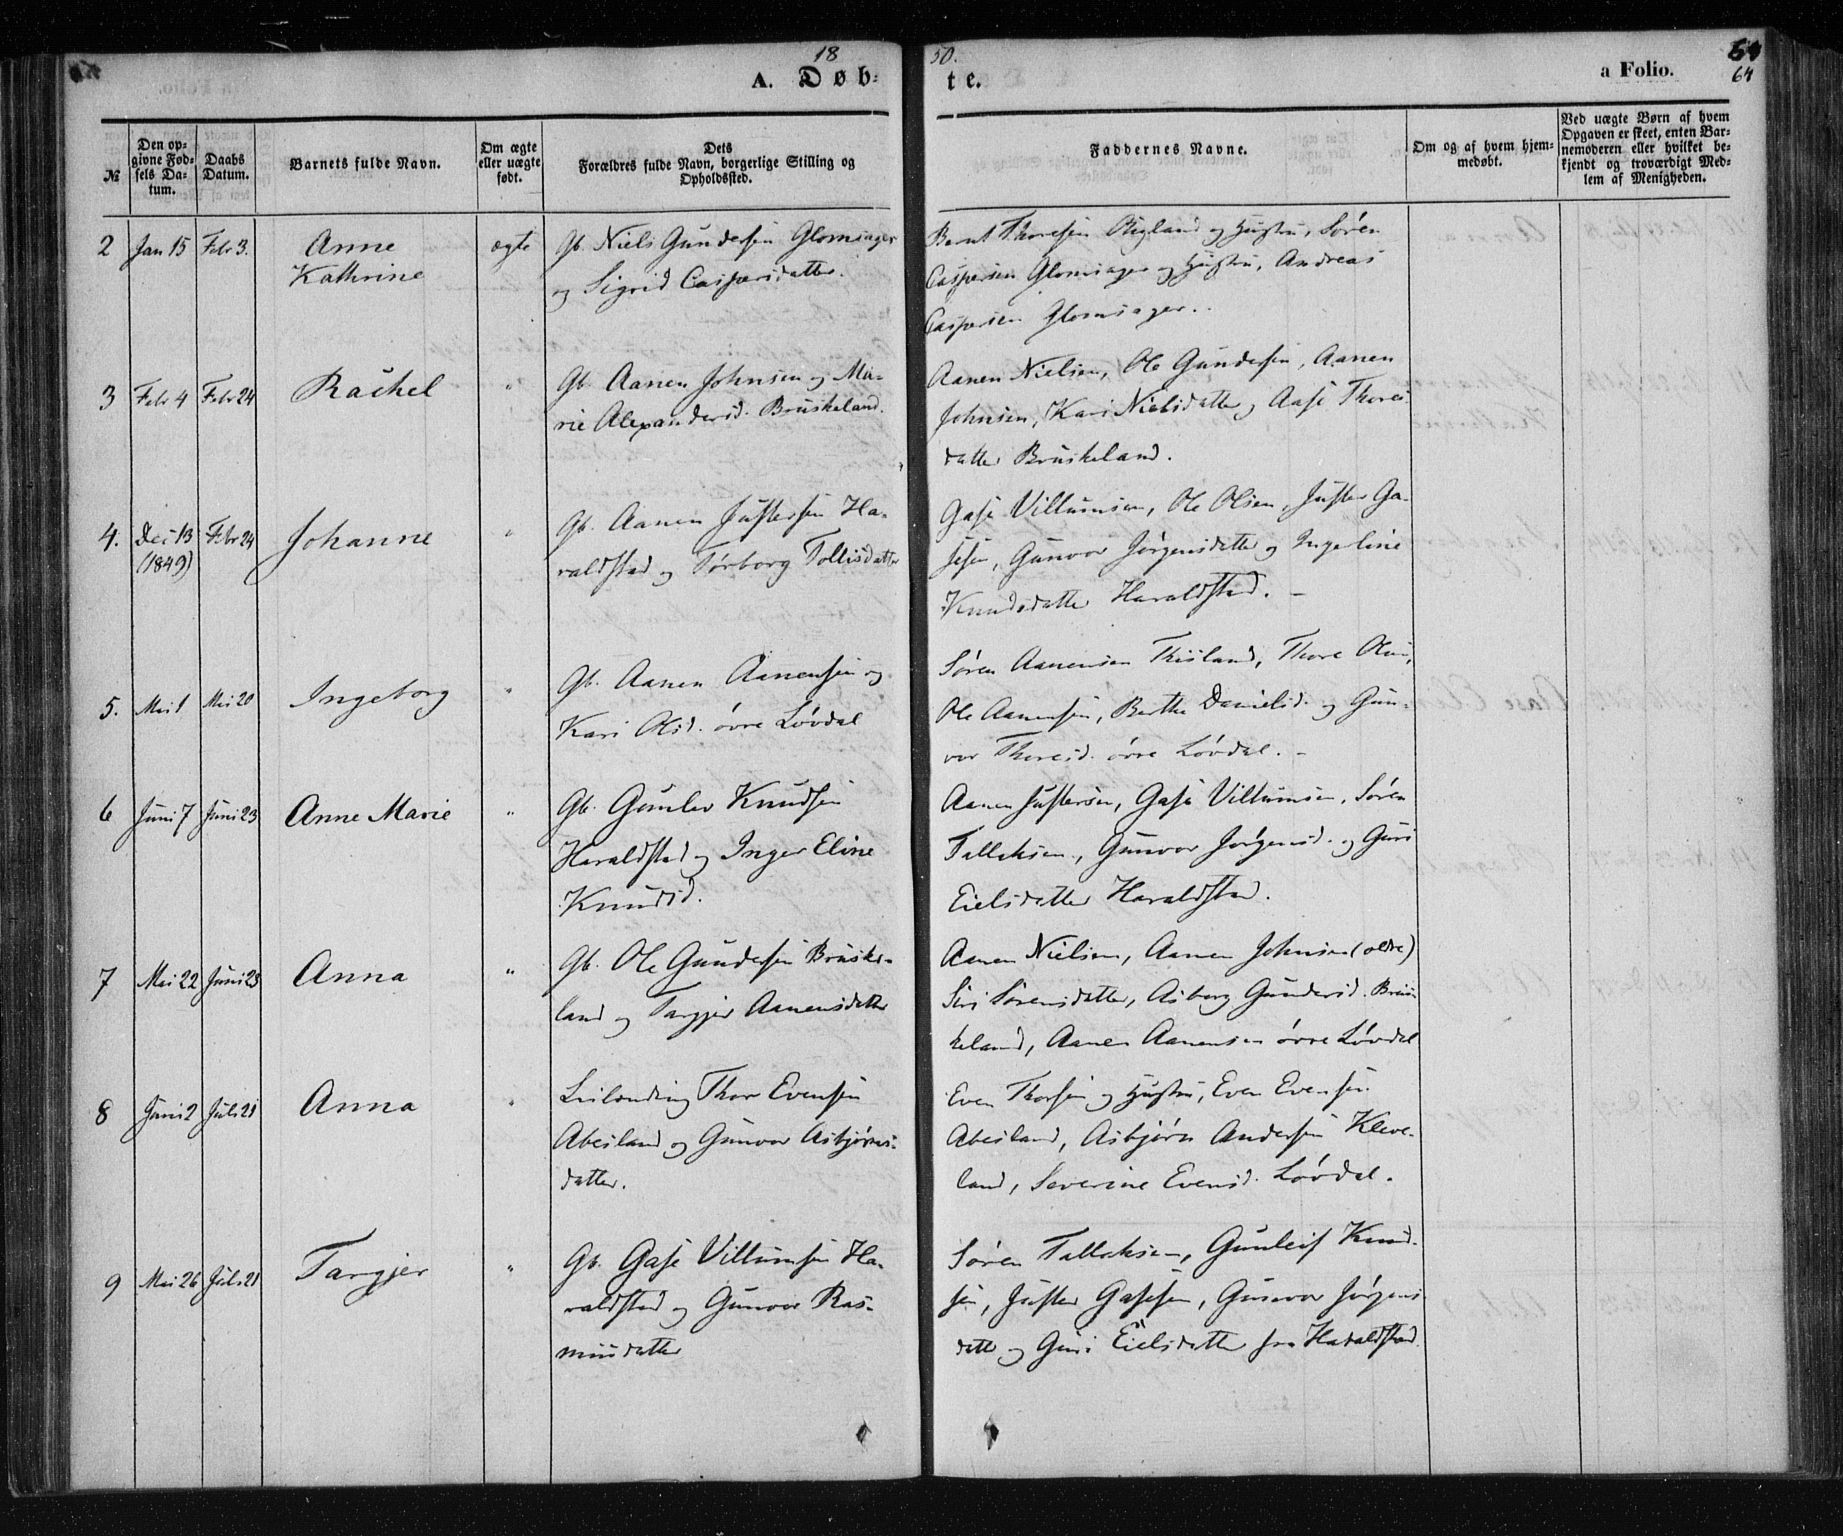 18
50.
64
64
A. Døb-
te.
a Folio.
№
Den op-
givne Fød-
sels Da-
tum.
Daabs
Datum.
Barnets fulde Navn.
Om ægte
eller uægte
født.
Dets
Forældres fulde Navn, borgerlige Stilling og
Opholdssted.
Faddernes Navne.
Om og af hvem hjem-
medøbt.
Ved uægte Børn af hvem
Opgaven er skeet, enten Bar-
nemoderen eller hvilket be-
kjendt og troværdigt Med-
lem af Menigheden.
2 Jan 15 Febr 3. Anne
Kathrine
ægte
Gb. Niels Gundersen Glomsager
og Sigrid Caspersdatter.
Bernt Thoresen Øigland og Hustru, Søren
Caspersen Glomsager og Hustru, Andreas
Caspersen Glomsager..
3 Febr 4 Febr 24 Rachel "
Gb. Aanen Johnsen og Ma-
rie Alexandersd. Bruskeland.
Aanen Nielsen, Ole Gundersen, Aanen
Johnsen, Kari Nielsdatter og Aase Thores-
datter Bruskeland.
4. Dec 13
(1849)
Febr 24 Johanne "
Gb. Aanen Justersen Ha-
raldstad og Tørborg Tollisdatter
Gase Villumsen, Ole Olsen, Juster Ga-
sesen, Gunvor Jørgensdatter og Ingerline
Knudsdatter Haraldstad. -
5. Mai 1 Mai 20 Ingeborg "
Gb. Aanen Aanensen og
Kari Olsd. øvre Løvdal
Søren Aanensen Thisland, Thore Olsen,
Ole Aanensen, Berthe Danielsd. og Gun-
vor Thoresd. øvre Løvdal. -
6 Juni 7 Juni 23 Anne Marie "
Gb. Gunlev Knudsen
Haraldstad og Inger Eline
Knudsd.
Aanen Justersen, Gase Villumsen, Søren
Tallaksen, Gunvor Jørgensd. og Guri
Eielsdatter Haraldstad.
7 Mai 22 Juni 23 Anna "
Gb. Ole Gundersen Bruske-
land og Targjer Aanensdatter
Aanen Nielsen, Aanen Johnsen (ældre)
Siri Sørensdatter, Asborg Gundersd. Brus-
keland, Aanen Aanensen øvre Løvdal
8 Juni 2 Juli 21 Anna "
Leilending Thor Evensen
Abesland og Gunvor Asbjørns-
datter.
Even Thorsen og Hustru, Even Evensen
Abesland, Asbjørn Andersen Kleve-
land, Severine Evensd. Løvdal.
9 Mai 26 Juli 21 Targjer "
Gb. Gase Villumsen Ha-
raldstad og Gunvor Ras-
musdatter
Søren Tallaksen, Gunleif Knud-
sen, Juster Gasesen, Gunvor Jørgens
datter og Guri Eielsdatter fra Haraldstad.